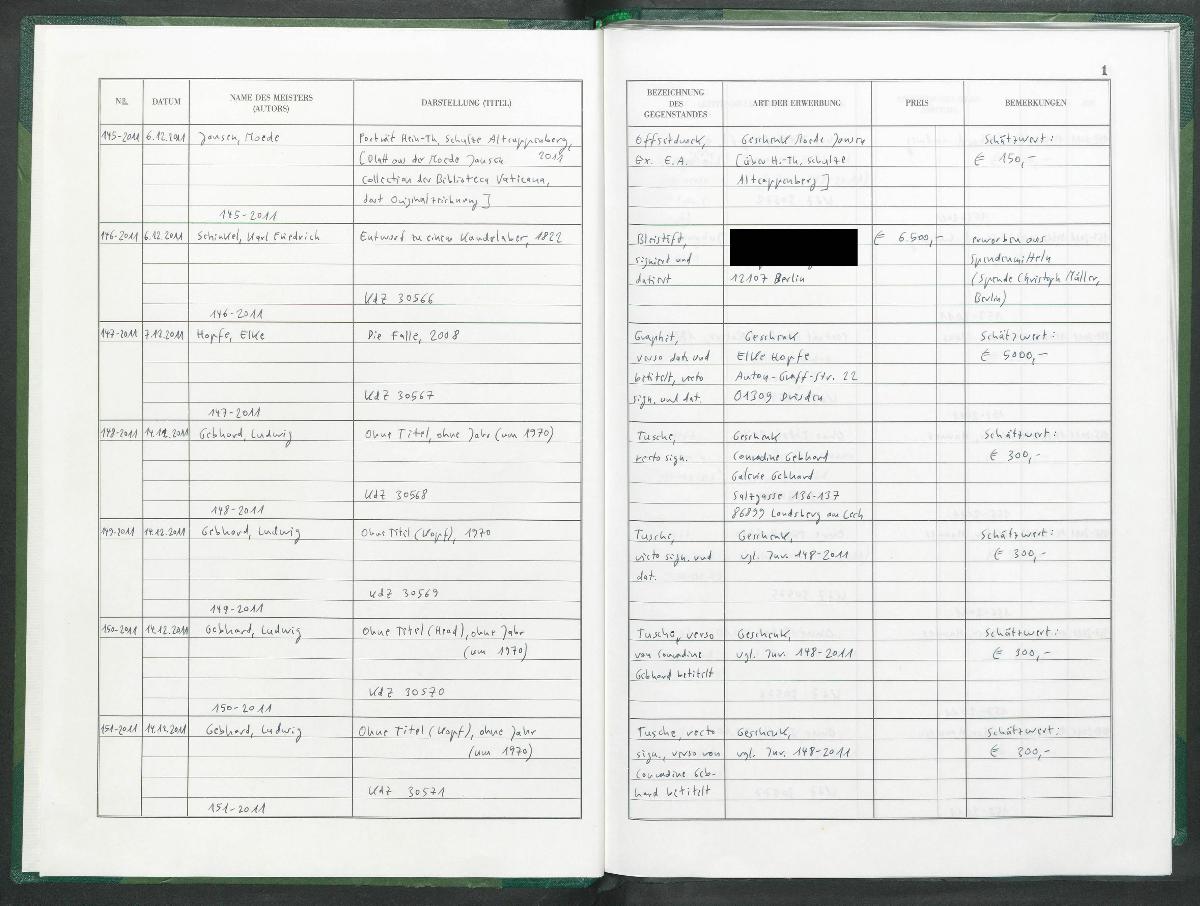 1
NR.
DATUM
NAME DES MEISTERS
(AUTORS)
DARSTELLUNG (TITEL)
BEZEICHNUNG
DES
GEGENSTANDES
ART DER ERWERBUNG
PREIS
BEMERKUNGEN
145-2011
6.12.2011
Jansen, Moede
Porträt Hein.-Th. Schulze Altcappenberg,
2011
[Blatt aus der Moede Jansen
Collection der Biblioteca Vaticana,
dort Originalzeichnung]
145-2011
Offsetdruck,
Ex. E.A.
Geschenk Moede Jansen
[über H.-Th. Schulze
Altcappenberg]
Schätzwert:
€ 150,-
146-2011
6.12.2011
Schinkel, Karl Friedrich
Entwurf zu einem Kandelaber, 1822
KdZ 30566
146-2011
Bleistift,
signiert und
datiert
12107 Berlin
€ 6.500,-
erworben aus
Spendenmitteln
(Spende Christoph Müller,
Berlin)
147-2011
7.12.2011
Hopfe, Elke
Die Falle, 2008
KdZ 30567
147-2011
Graphit,
verso dat. und
betitelt, recto
sign. und dat.
Geschenk
Elke Hopfe
Anton-Graff-Str. 22
01309 Dresden
Schätzwert:
€ 5000,-
148-2011
14.12.2011
Gebhard, Ludwig
Ohne Titel, ohne Jahr (um 1970)
KdZ 30568
148-2011
Tusche,
recto sign.
Geschenk
Conradine Gebhard
Galerie Gebhard
Salzgasse 136-137
86899 Landsberg am Lech
Schätzwert:
€ 300,-
149-2011
14.12.2011
Gebhard, Ludwig
Ohne Titel (Kopf), 1970
KdZ 30569
149-2011
Tusche,
recto sign. und
dat.
Geschenk,
vgl. Inv. 148-2011
Schätzwert:
€ 300,-
150-2011
14.12.2011
Gebhard, Ludwig
Ohne Titel (Head), ohne Jahr
(um 1970)
KdZ 30570
150-2011
Tusche, verso
von Conradine
Gebhard betitelt
Geschenk,
vgl. Inv. 148-2011
Schätzwert:
€ 300,-
151-2011
14.12.2011
Gebhard, Ludwig
Ohne Titel (Kopf), ohne Jahr
(um 1970)
KdZ 30571
151-2011
Tusche, recto
sign., verso von
Conradine Geb-
hard betitelt
Geschenk,
vgl. Inv. 148-2011
Schätzwert:
€ 300,-